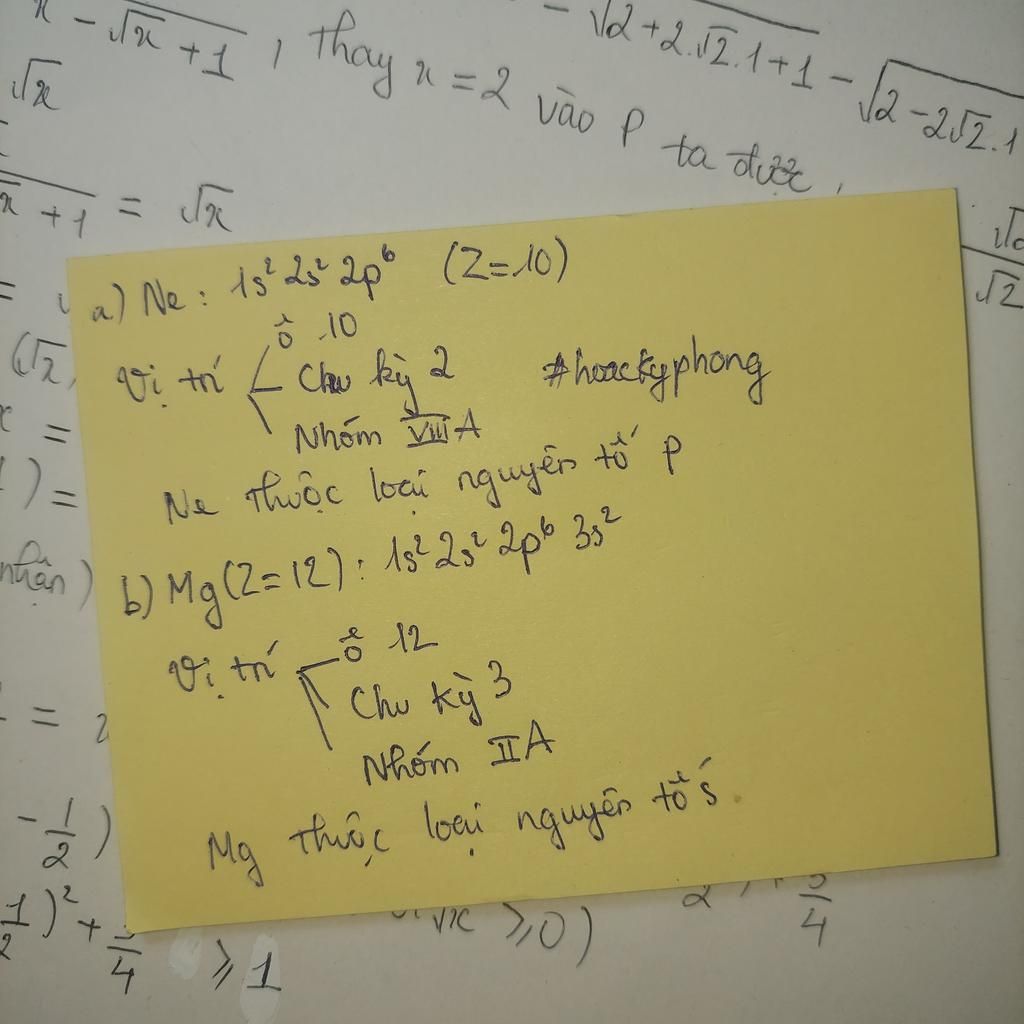 x - √x + 1 , thay x = 2 vào P ta được
- √2 + 2.√2.1 + 1 - √2 - 2√2.1
√x
x + 1 = √x
a) Ne : 1s² 2s² 2p⁶ (Z=10)
Vị trí
ô 10
Chu kỳ 2
Nhóm VIIIA
#hoackyphong
Ne thuộc loại nguyên tố p
b) Mg (Z=12) : 1s² 2s² 2p⁶ 3s²
Vị trí
ô 12
Chu kỳ 3
Nhóm IIA
Mg thuộc loại nguyên tố s
nhận)
- 1/2 )
1/2 )² + 3/4 ≥ 1
√x ≥ 0)